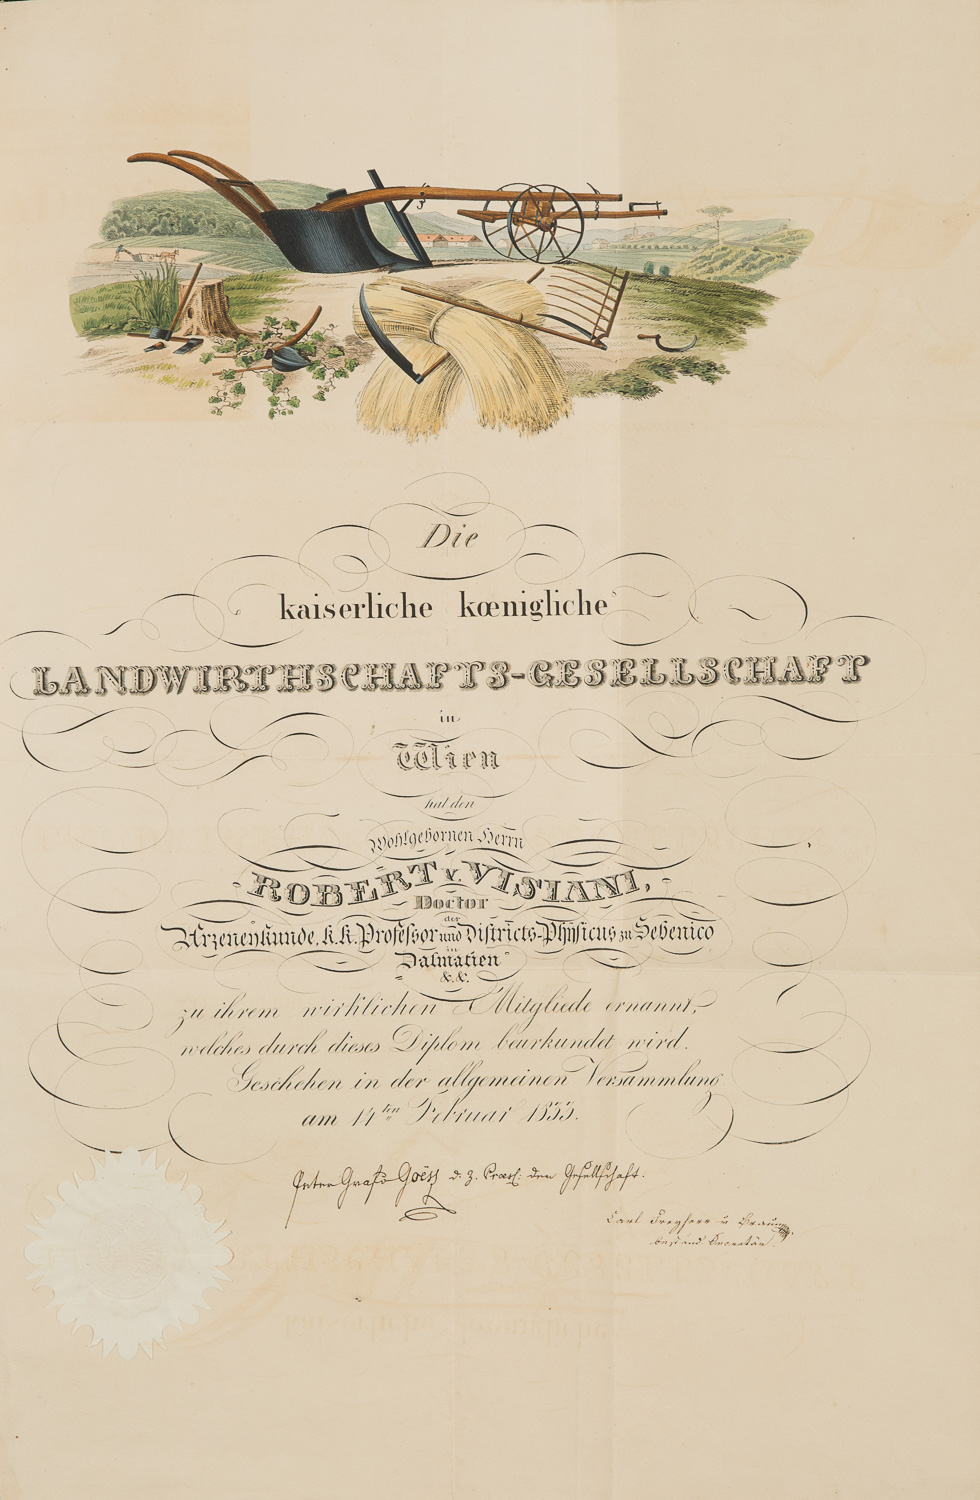 Die
kaiserliche kœnigliche
LANDWIRTHSCHAFTS-GESELLSCHAFT
in
Wien
hat den
Wohlgebornen Herrn
ROBERT v. VISIANI,
Doctor
der
Arzeneykunde, k. k. Professor und Districts-Physicus zu Sebenico
in
Dalmatien
&. &.
zu ihrem wirklichen Mitgliede ernannt,
welches durch dieses Diplom beurkundet wird.
Geschehen in der allgemeinen Versammlung
am 14ten Februar 1833.
Peter Graf v Goëss d. z. Præs: der Gesellschaft.
Carl Freyherr v Braun
best änd. Secretär